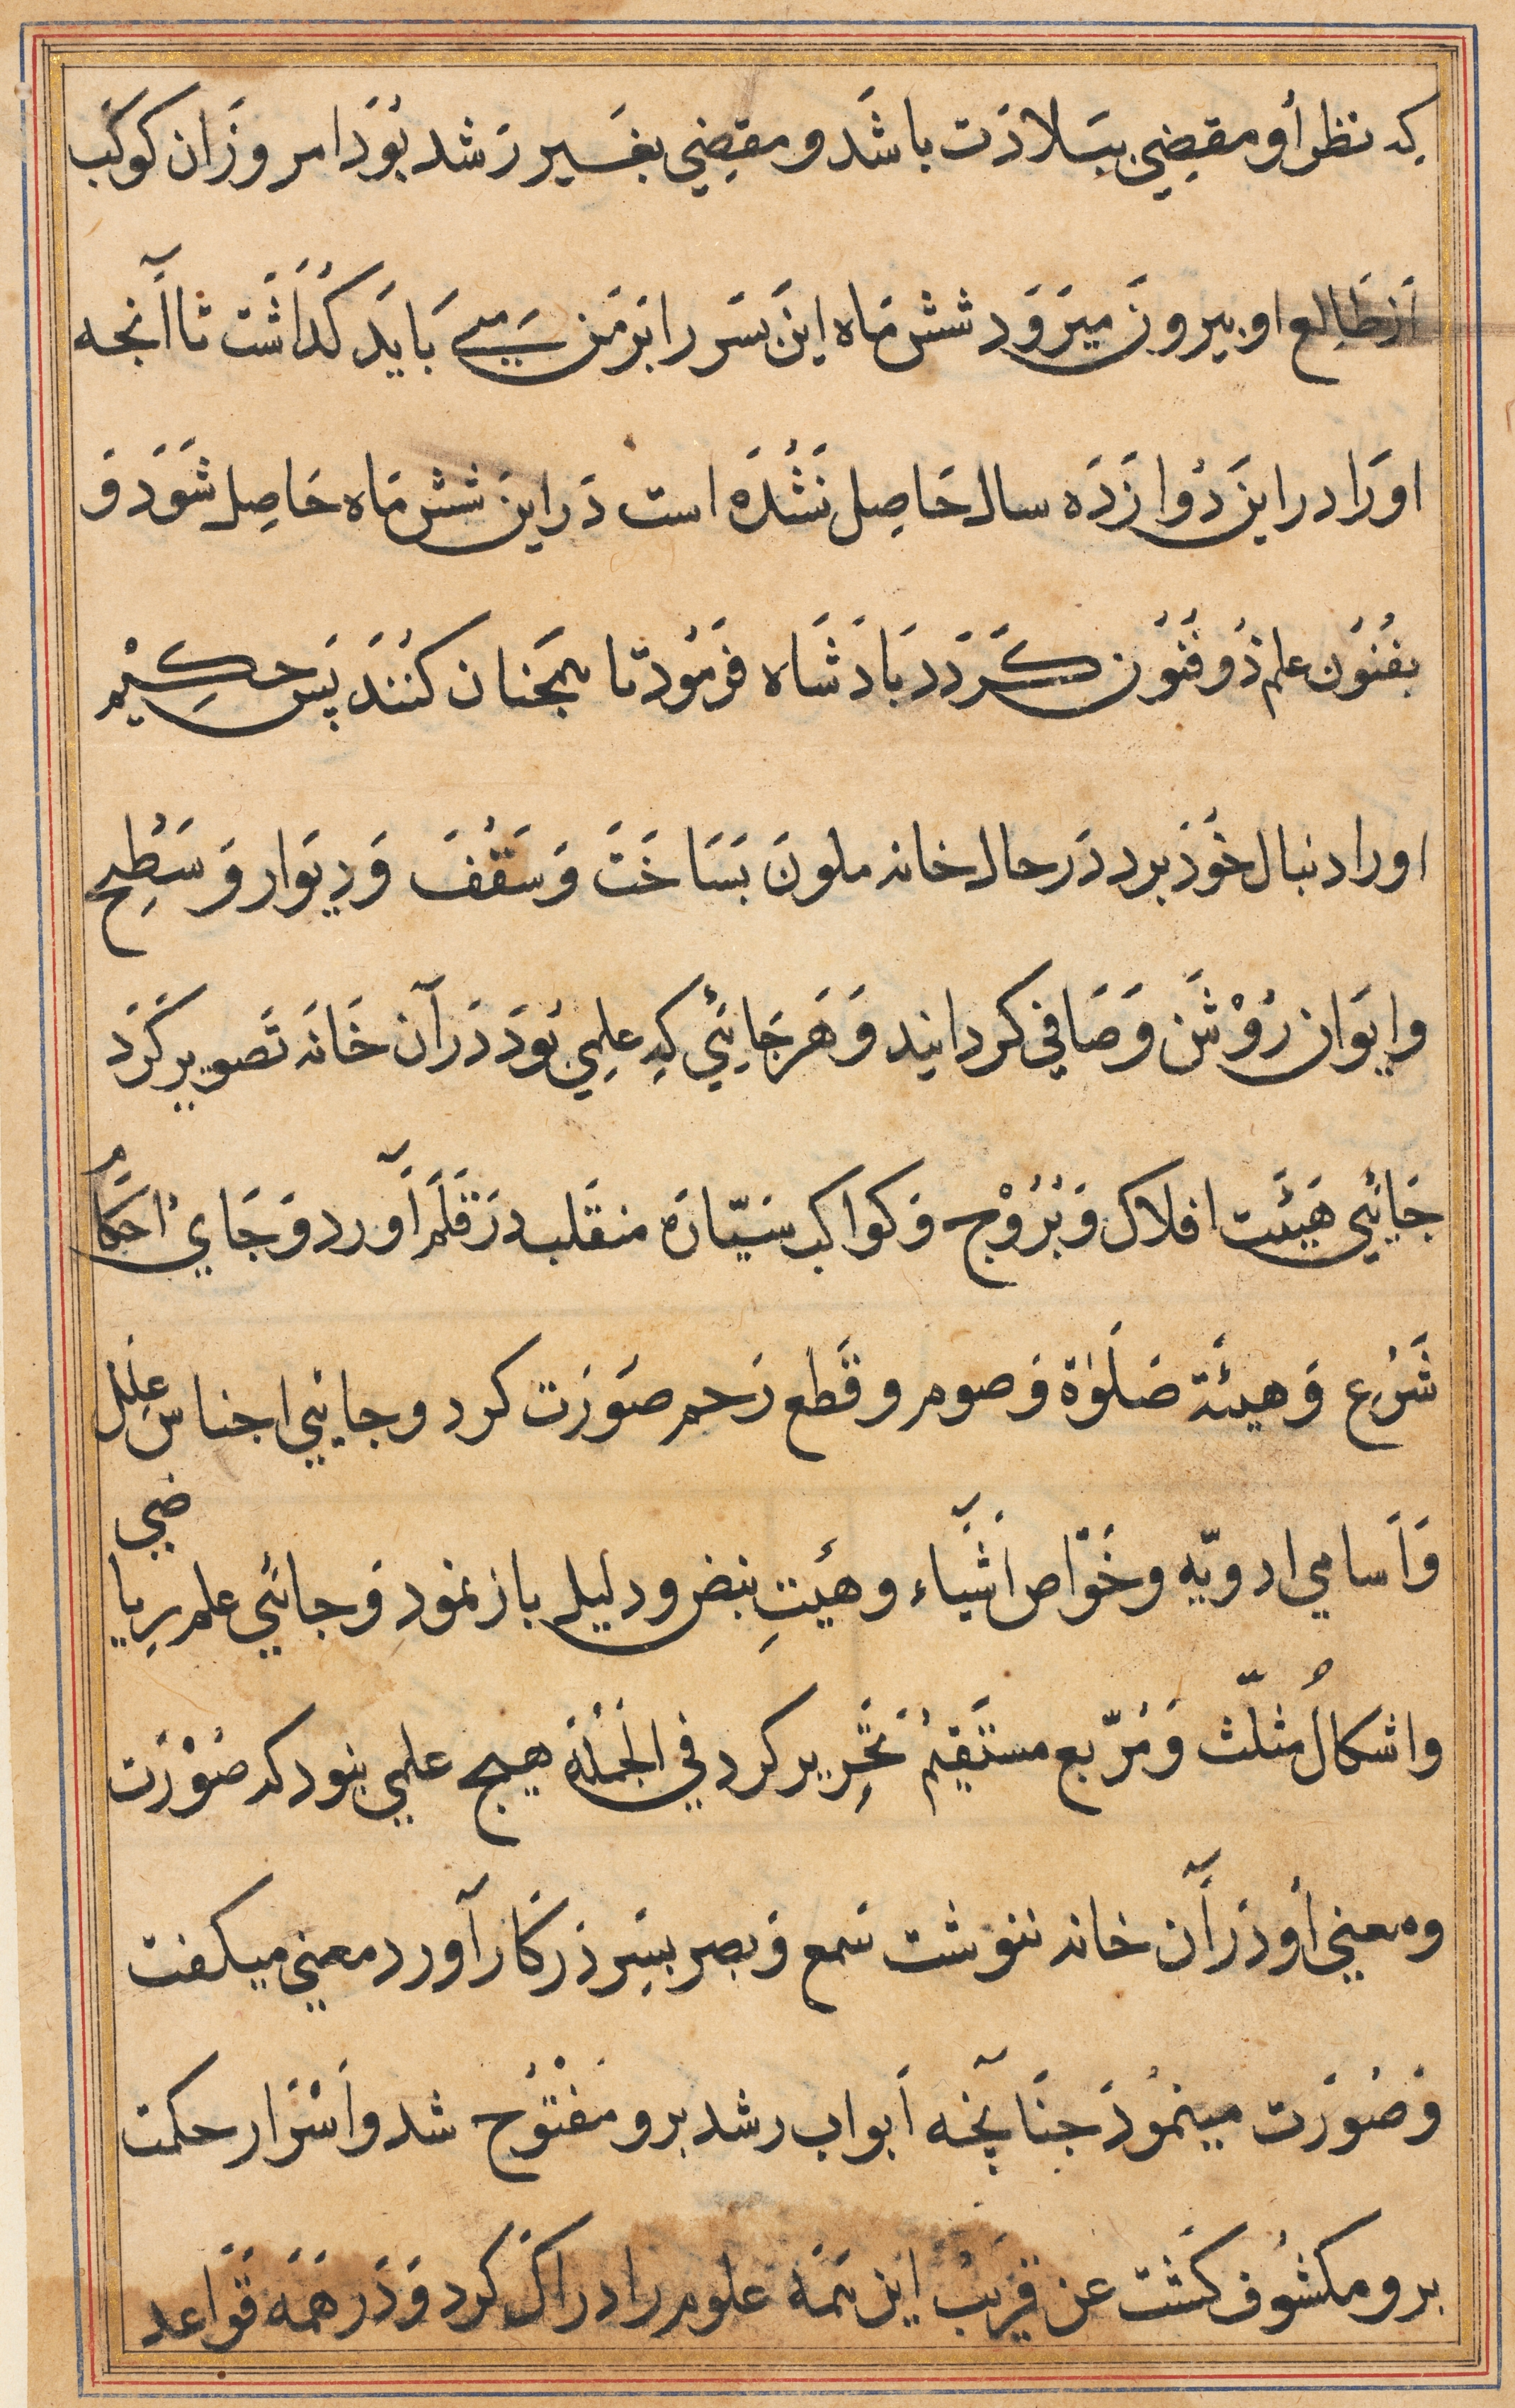 که نظر أو مقضِي ببَلادَت باشَد و مقضِي بغَیر رَشد بُوَد امروزَ ان کوکَب
اَز طَالِع او بیرونَ میرَوَد شش مَاه اینَ بسَر را بَرمَن می بَایَد کُذَاشَت تا آنجه
اورَا در اینَ دُوازَدَه سال حَاصِل نَشُدَه است دَر اینَ شش مَاه حَاصِل شَوَد وَ
بفُنوَن علم ذُو فنَوُن کَرَدَد بَادَشَاه فَرمُود تا همجَنان کنُنَد پَس حکِیْم
اورا دنبال خَوذ برد دَر حال خانه ملونَ بَسَاخَتَ وَ سَقْفَ وَ دِیوَار وَ سَطِح
وایوَان رَوْشَن وَ صَافي کردانید وَ هَر جَائي که عِلمِي بَود دَر آن خَانَه تَصویر کَرَد
جَائي هَیئَت افلاک وَ بُرُوْج وَ کواکب سَیّارَه منقَلب دَر قلَم آورد وَ جَايْ احکَام
شَرْع وَ هیئَة صَلَوٰة وَ صوم و قَطع رَحم صَورَت کرد و جائي اجناس عِلَل
وَ اَسامي ادویّه و خَوّاص اَشیَاء و هیئتِ نبض و دلیل باز نمودِ وَ جائي علم رِیاضي
واشکالُ مثلّث وَ مُرّبع مستَقیمُ تَحِریر کرد في الجُملَة هیج علمي نبود که صُوْرَت
ومعني أو دَر آَن خانه ننوشت سَمع وَ بصر بسَر دَر کار آورد معني میکفت
وَ صُورَت مینمُود جنَانجه اَبواب رشد برو مَفْتوُح شد و اَسْرَار حکمت
برو مکشوُف کَشت عن قَریَبْ این همَه علوم را دراک کرد وَ دَر هَمَه قَوَاعد